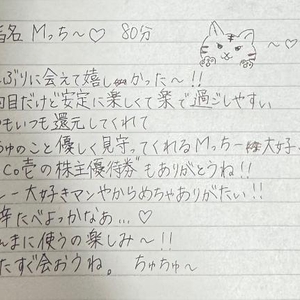 名 Mっち～♡ 80分
～♡
ぶりに会えて嬉しかった～!!
回目だけど安定に楽しくて楽で過ごしやすい
もいつも還元してくれて
ゅのこと優しく見守ってくれるMっち～大好き
Co壱の株主優待券"もありがとうね!!
ー大好きマンやからめちゃありがたい!!
辛たべよっかなぁ…♡
んまに使うの楽しみ～!!
たすぐ会おうね。 ちゅちゅ～